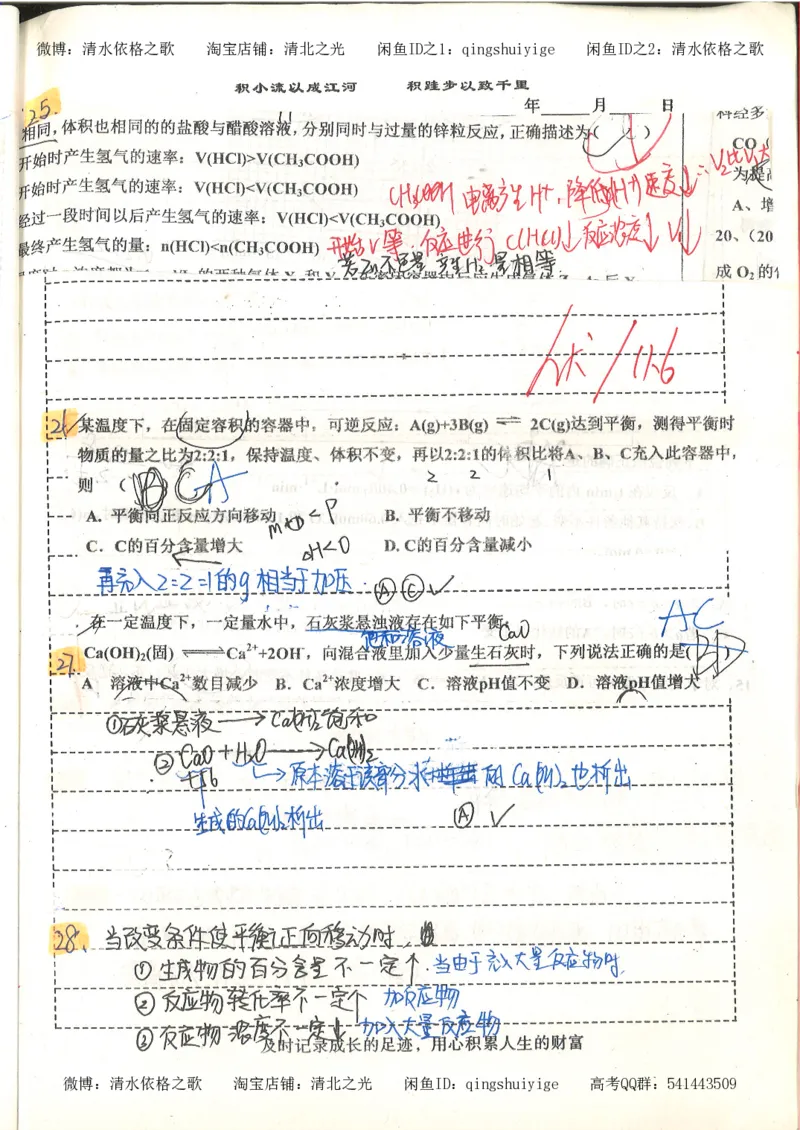 微博：清水依格之歌 淘宝店铺：清北之光 闲鱼ID之1：qingshuiyige 闲鱼ID之2：清水依格之歌
积小流以成江河 积跬步以致千里
年 月 日
25.
相同，体积也相同的的盐酸与醋酸溶液，分别同时与过量的锌粒反应，正确描述为（ ）
开始时产生氢气的速率：V(HCl)>V(CH₃COOH)
开始时产生氢气的速率：V(HCl)<V(CH₃COOH)
经过一段时间以后产生氢气的速率：V(HCl)<V(CH₃COOH)
最终产生氢气的量：n(HCl)<n(CH₃COOH)
CH₃COOH 电离产生H⁺，降低 速度↓
开始V等，反应进行 C(HCl)↓ 反应浓度↓ V↓
产生H₂量相等
CO
为提高
A、增
20、（20
成 O₂的
26 某温度下，在固定容积的容器中，可逆反应：A(g)+3B(g) ⇌ 2C(g)达到平衡，测得平衡时
物质的量之比为2:2:1，保持温度、体积不变，再以2:2:1的体积比将A、B、C充入此容器中，
2 2 1
则 （ B C A
A. 平衡向正反应方向移动 B. 平衡不移动
m+n<P
C. C的百分含量增大 D. C的百分含量减小
ΔH<0
再充入2=2=1的g 相当于加压. Ⓐ Ⓒ ✓
在一定温度下，一定量水中，石灰浆悬浊液存在如下平衡：
饱和溶液 CaO AC
27. Ca(OH)₂(固) ⇌ Ca²⁺+2OH⁻，向混合液里加入少量生石灰时，下列说法正确的是
A 溶液中Ca²⁺数目减少 B. Ca²⁺浓度增大 C. 溶液pH值不变 D. 溶液pH值增大
①石灰浆悬液→Ca(OH)₂饱和
②CaO+H₂O→Ca(OH)₂
56 原本溶于该部分 的 Ca(OH)₂也析出
生成的Ca(OH)₂析出 Ⓐ ✓
28、当改变条件使平衡正向移动时，
①生成物的百分含量不一定↑. 当由于充入大量反应物时
②反应物转化率不一定↑ 加反应物
③反应物浓度不一定↓ 加入大量反应物
及时记录成长的足迹，用心积累人生的财富
微博：清水依格之歌 淘宝店铺：清北之光 闲鱼ID：qingshuiyige 高考QQ群：541443509